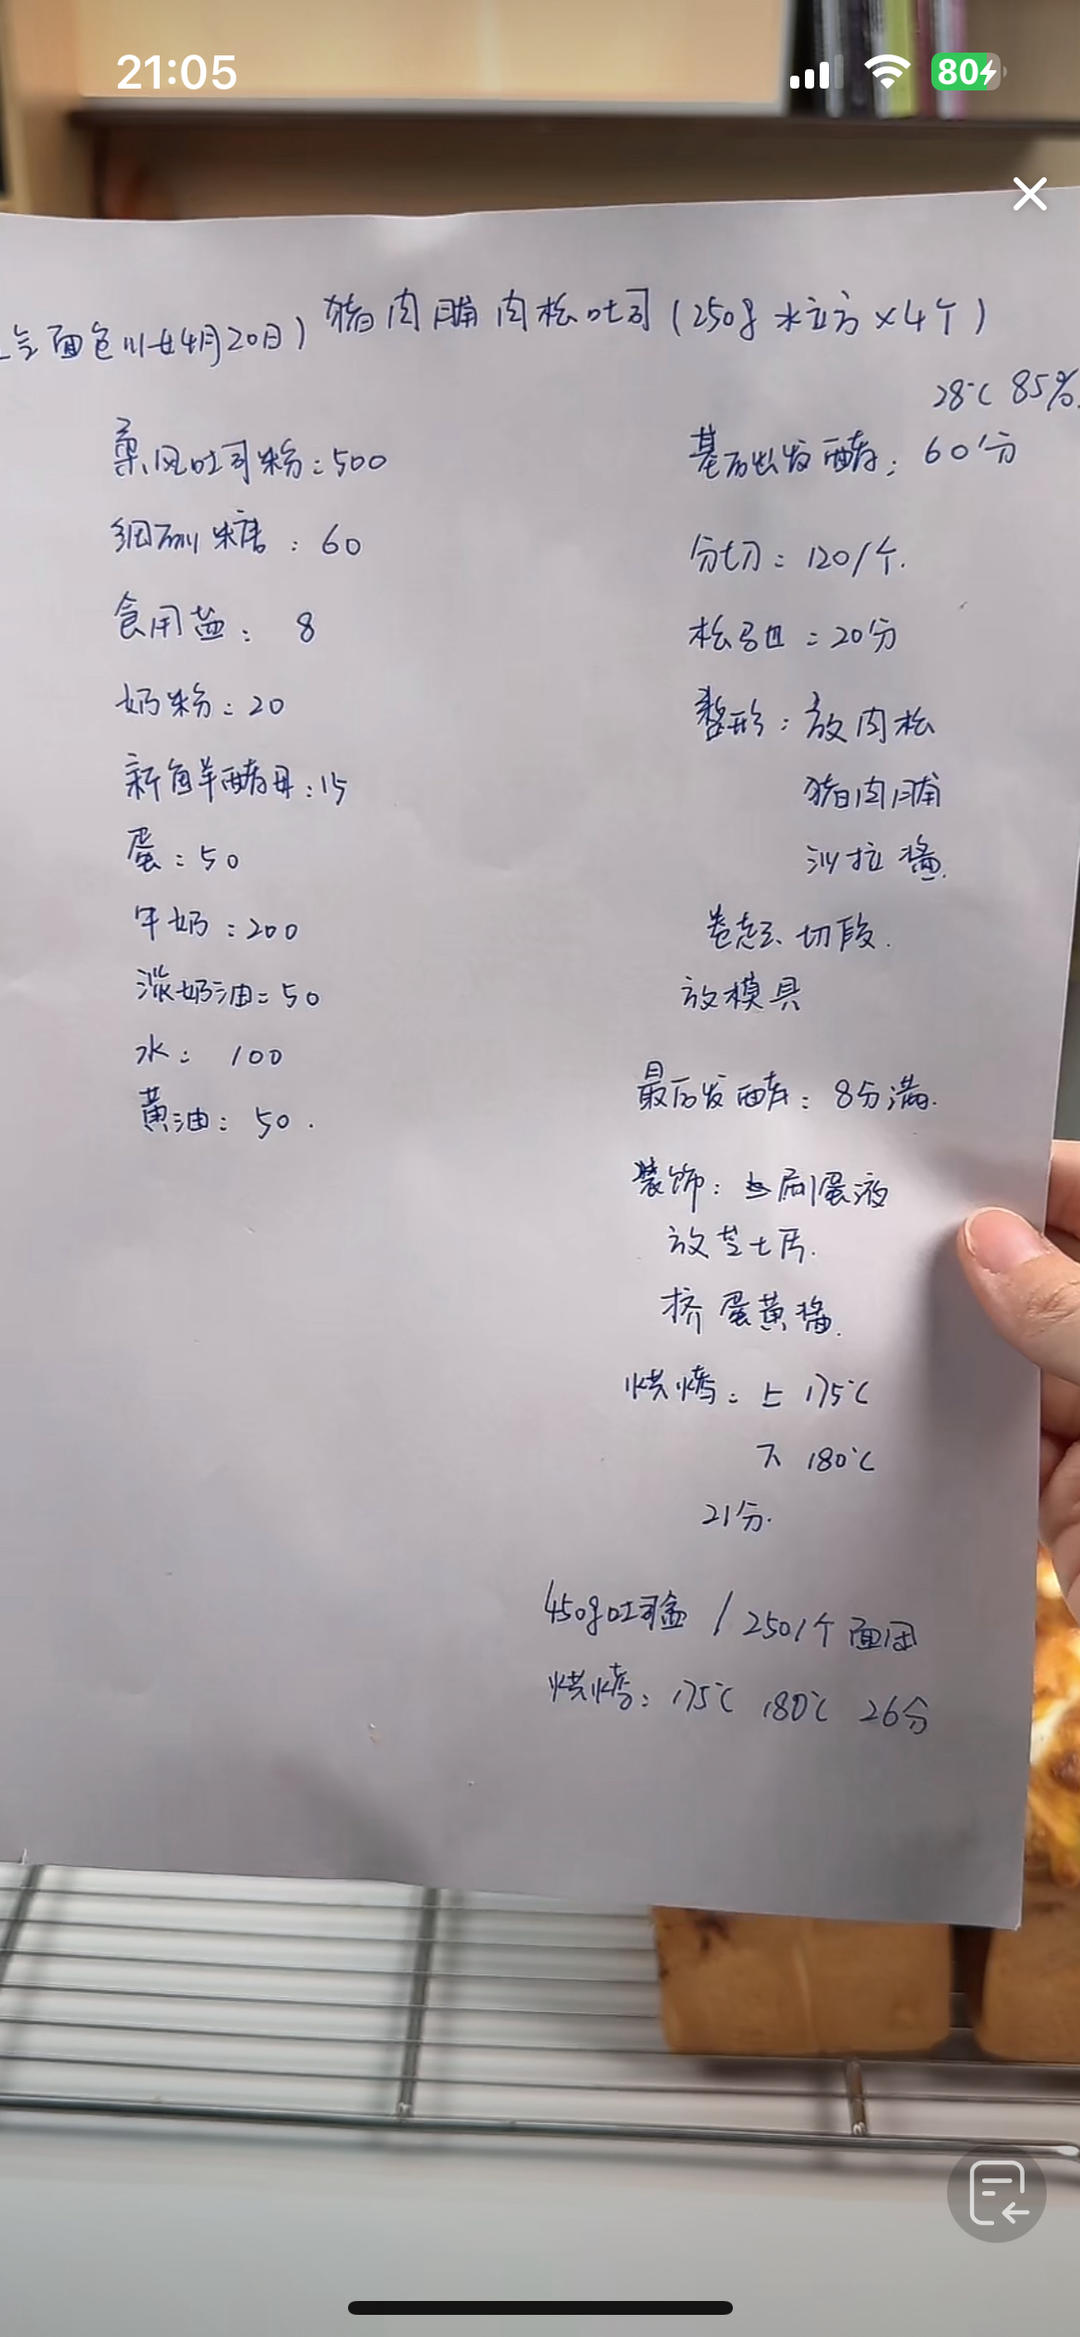 21:05
80
面包 4月20日)
猪肉脯肉松吐司(250g 水立方×4个)
柔风吐司粉:500
细砂糖:60
食用盐:8
奶粉:20
新鲜酵母:15
蛋:50
牛奶:200
淡奶油:50
水:100
黄油:50.
28℃ 85%
基础发酵:60分
分切:120/个.
松弛:20分
整形:放肉松
猪肉脯
沙拉酱.
卷起 切段.
放模具
最后发酵:8分满.
装饰:刷蛋液
放芝士片.
挤蛋黄酱.
烘烤:上175℃
下180℃
21分.
450g吐司盒 / 250/个面团
烘烤:175℃ 180℃ 26分